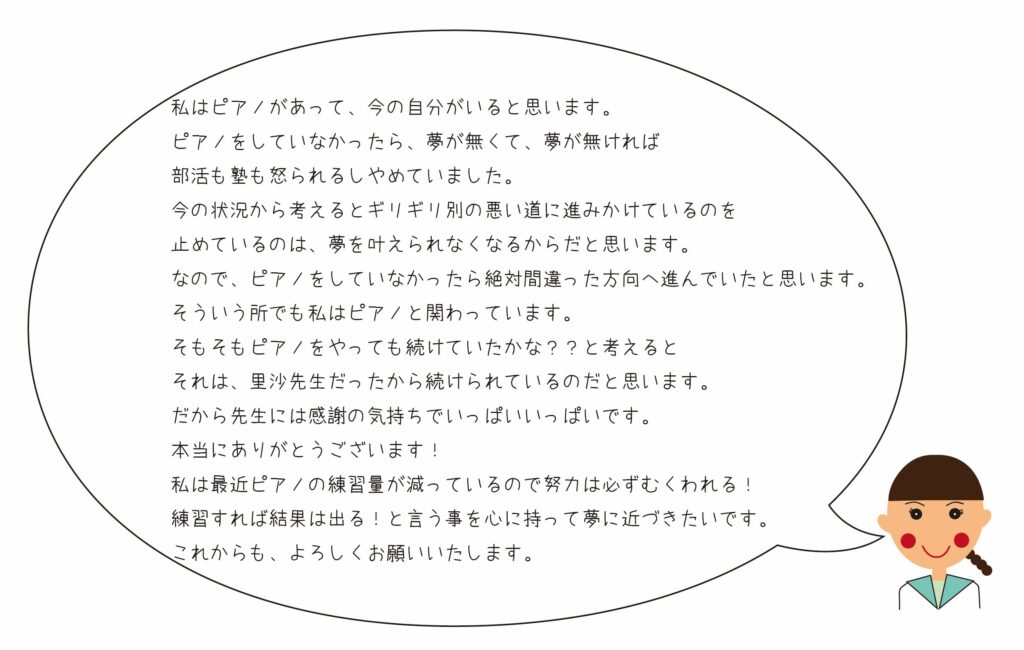 私はピアノがあって、今の自分がいると思います。
ピアノをしていなかったら、夢が無くて、夢が無ければ
部活も塾も怒られるしやめていました。
今の状況から考えるとギリギリ別の悪い道に進みかけているのを
止めているのは、夢を叶えられなくなるからだと思います。
なので、ピアノをしていなかったら絶対間違った方向へ進んでいたと思います。
そういう所でも私はピアノと関わっています。
そもそもピアノをやっても続けていたかな？？と考えると
それは、里沙先生だったから続けられているのだと思います。
だから先生には感謝の気持ちでいっぱいいっぱいです。
本当にありがとうございます！
私は最近ピアノの練習量が減っているので努力は必ずむくわれる！
練習すれば結果は出る！と言う事を心に持って夢に近づきたいです。
これからも、よろしくお願いいたします。